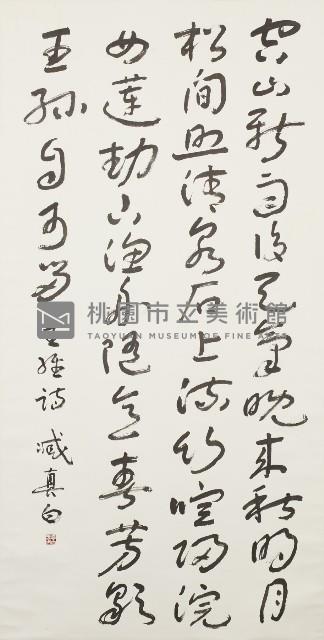 空山新雨後天氣晚來秋明月
松間照清泉石上流竹喧歸浣
女蓮動下漁舟隨意春芳歇
王孫自可留 王維詩 臧真白
桃園市立美術館
TAOYUAN MUSEUM OF FINE ARTS